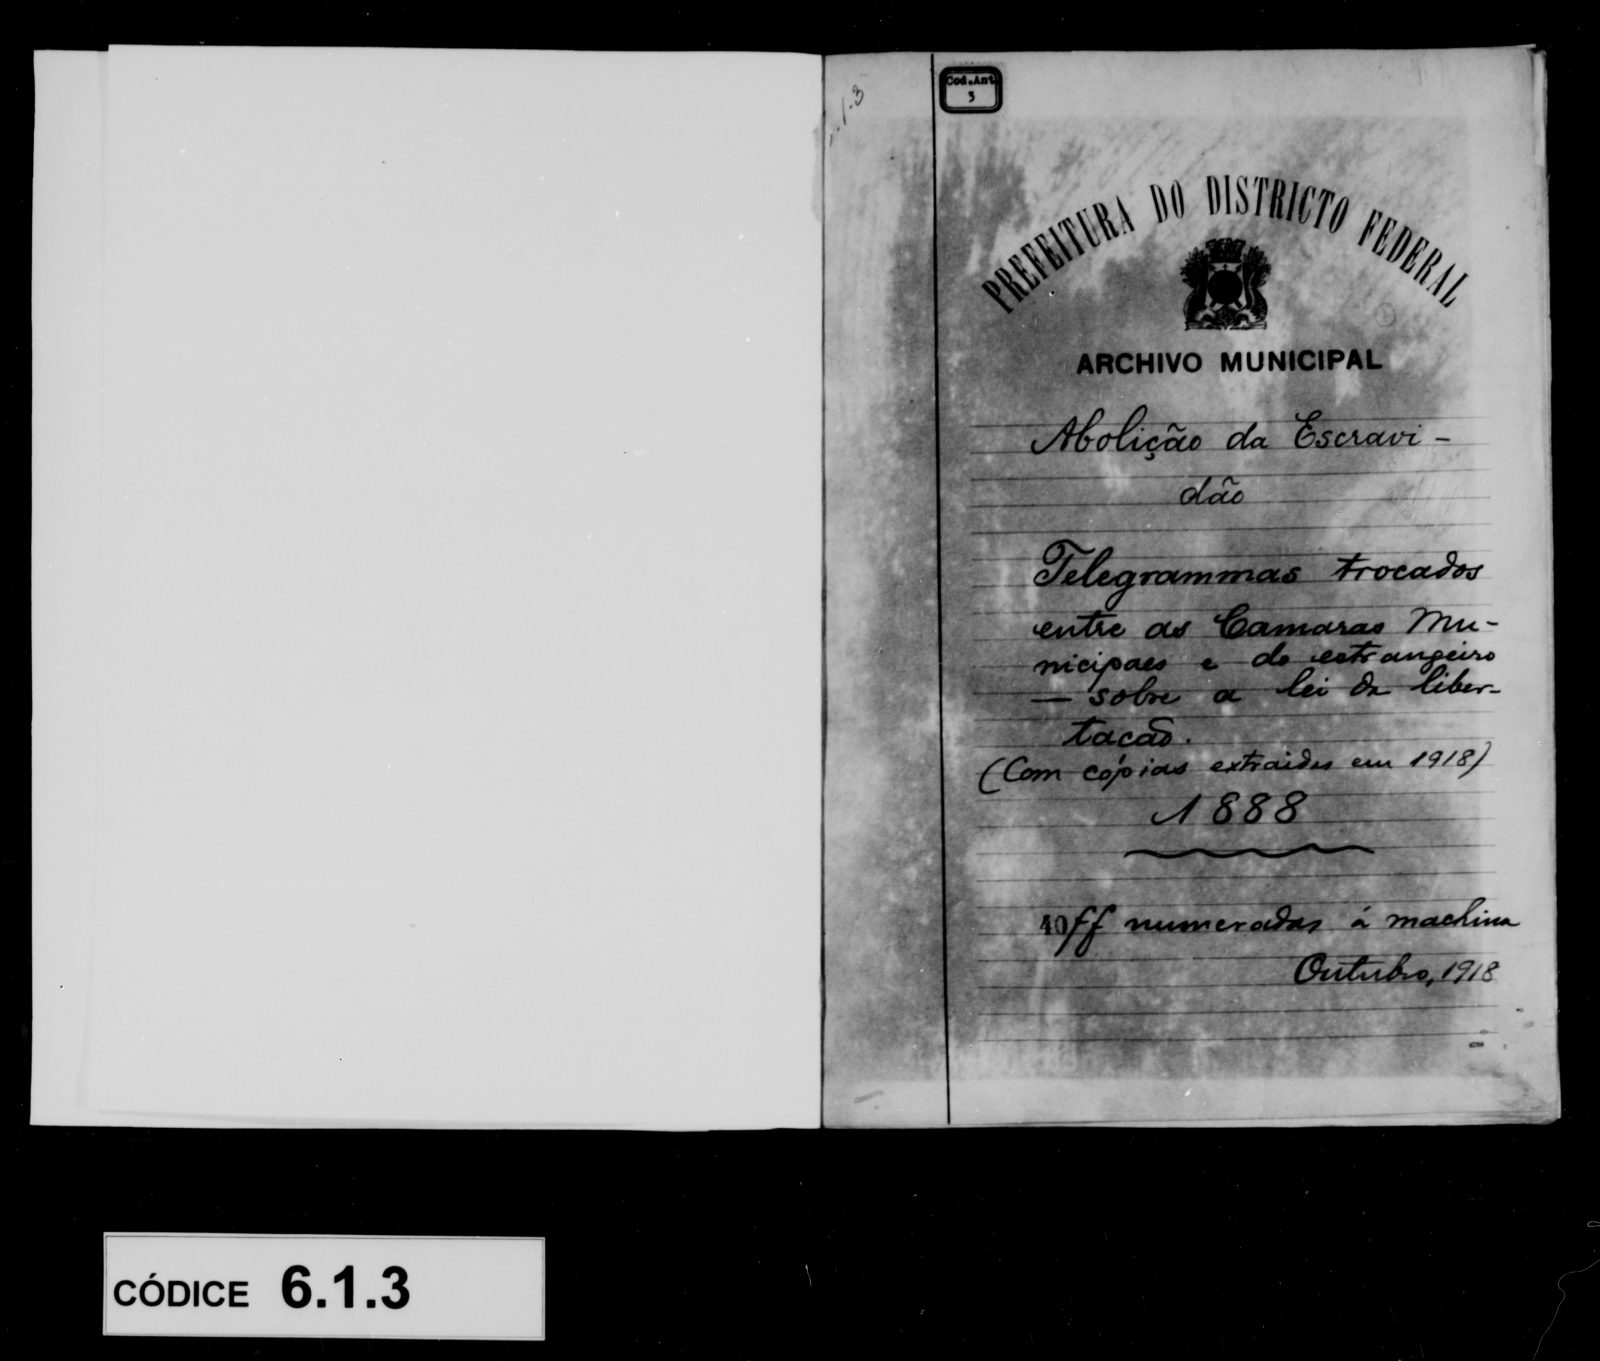 Cod.Ant
3
PREFEITURA DO DISTRICTO FEDERAL
ARCHIVO MUNICIPAL
Abolição da Escravi-
dão
Telegrammas trocados
entre as Camaras Mu-
nicipaes e do estrangeiro
— sobre a lei da liber-
tacão.
(Com cópias extraidas em 1918)
1888
40ff numeradas á machina
Outubro, 1918
CÓDICE 6.1.3